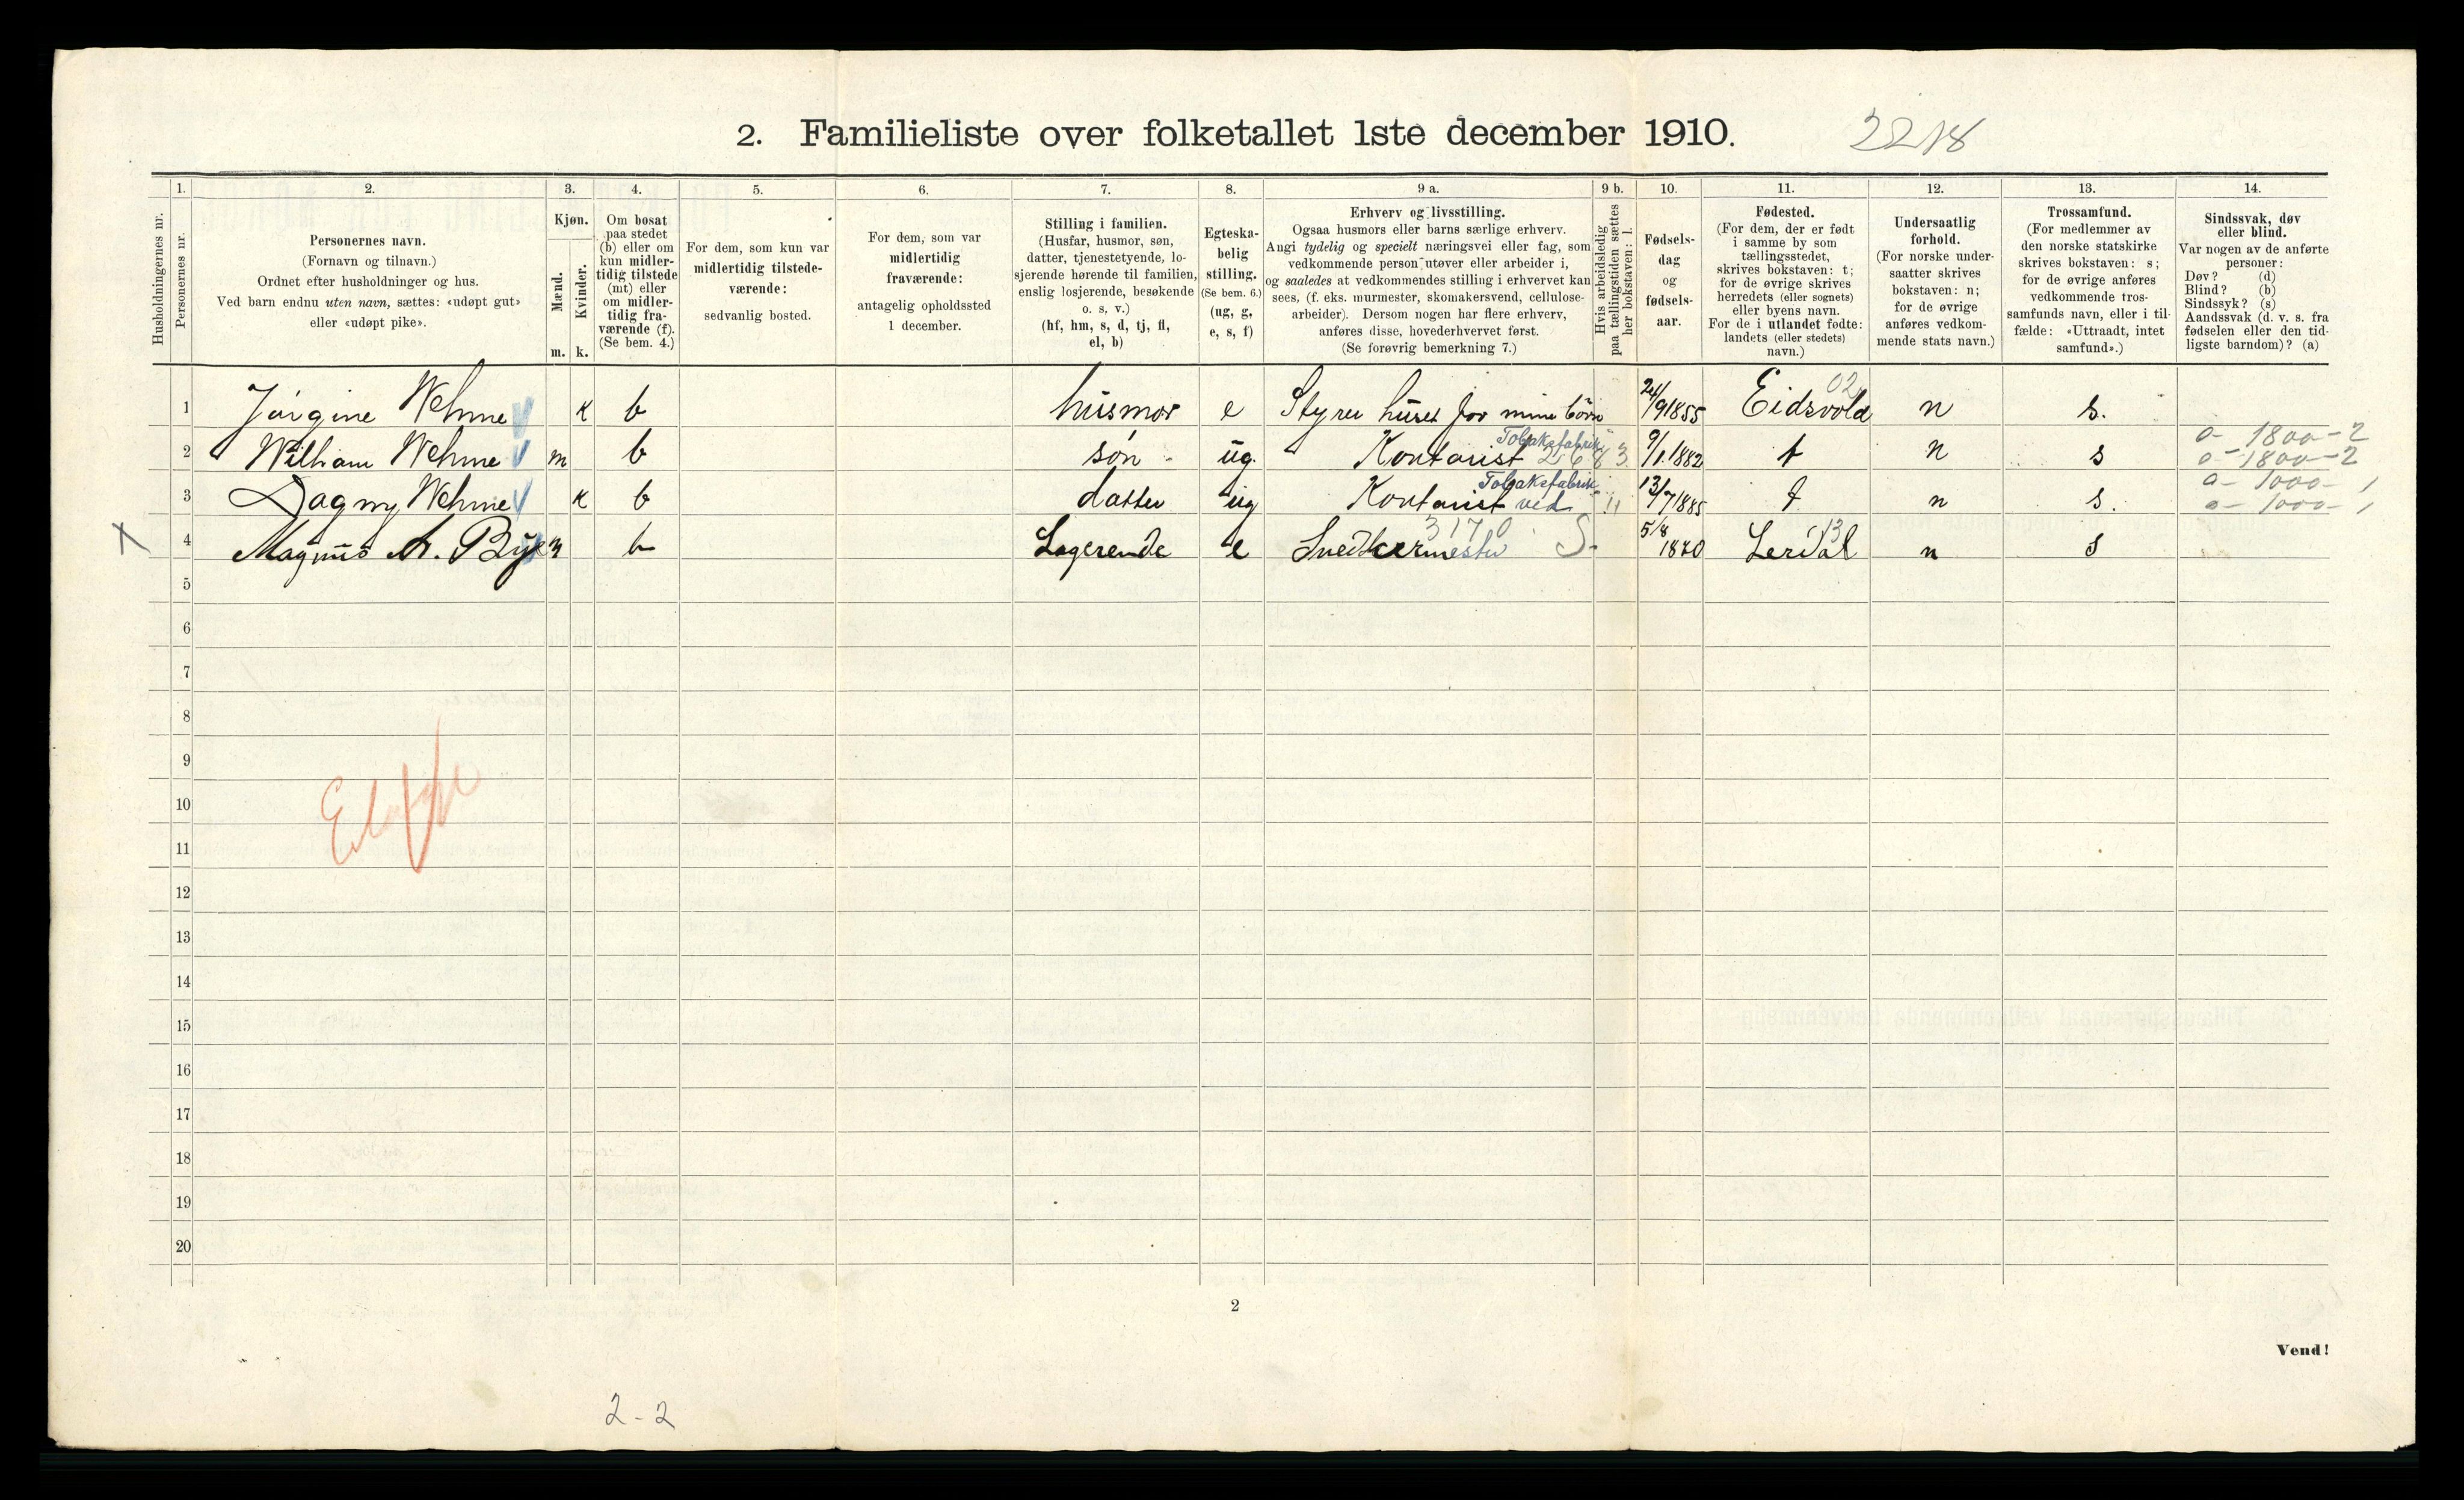 2. Familieliste over folketallet 1ste december 1910.
2218
Husholdningernes nr.
1.
Personernes nr.
2.
Personernes navn.
(Fornavn og tilnavn.)
Ordnet efter husholdninger og hus.
Ved barn endnu uten navn, sættes: «udøpt gut»
eller «udøpt pike».
3.
Kjøn.
Mænd.
m.
Kvinder.
k.
4.
Om bosat
paa stedet
(b) eller om
kun midler-
tidig tilstede
(mt) eller
om midler-
tidig fra-
værende (f).
(Se bem. 4.)
5.
For dem, som kun var
midlertidig tilstede-
værende:
sedvanlig bosted.
6.
For dem, som var
midlertidig
fraværende:
antagelig opholdssted
1 december.
7.
Stilling i familien.
(Husfar, husmor, søn,
datter, tjenestetyende, lo-
sjerende hørende til familien,
enslig losjerende, besøkende
o. s. v.)
(hf, hm, s, d, tj, fl,
el, b)
8.
Egteska-
belig
stilling.
(Se bem. 6.)
(ug, g,
e, s, f)
9 a.
Erhverv og livsstilling.
Ogsaa husmors eller barns særlige erhverv.
Angi tydelig og specielt næringsvei eller fag, som
vedkommende person utøver eller arbeider i,
og saaledes at vedkommendes stilling i erhvervet kan
sees, (f. eks. murmester, skomakersvend, cellulose-
arbeider). Dersom nogen har flere erhverv,
anføres disse, hovederhvervet først.
(Se forøvrig bemerkning 7.)
9 b.
Hvis arbeidsledig
paa tællingstiden sættes
her bokstaven: l.
10.
Fødsels-
dag
og
fødsels-
aar.
11.
Fødested.
(For dem, der er født
i samme by som
tællingsstedet,
skrives bokstaven: t;
for de øvrige skrives
herredets (eller sognets)
eller byens navn.
For de i utlandet fødte:
landets (eller stedets)
navn.)
12.
Undersaatlig
forhold.
(For norske under-
saatter skrives
bokstaven: n;
for de øvrige
anføres vedkom-
mende stats navn.)
13.
Trossamfund.
(For medlemmer av
den norske statskirke
skrives bokstaven: s;
for de øvrige anføres
vedkommende tros-
samfunds navn, eller i til-
fælde: «Uttraadt, intet
samfund».)
14.
Sindssvak, døv
eller blind.
Var nogen av de anførte
personer:
Døv? (d)
Blind? (b)
Sindssyk? (s)
Aandssvak (d. v. s. fra
fødselen eller den tid-
ligste barndom)? (a)
1 Jørgine Wehme k b husmor e Styrer huset for mine börn 24/9 1855 Eidsvold 02 n s.
2 William Wehme m b søn ug. Kontorist Tobaksfabrik 268 3 9/1 1882 t n s o- 1800-2
o- 1800-2
3 Dagny Wehme k b datter ug Kontorist ved Tobaksfabrik " 13/7 1885 t n s. o- 1000- 1
o- 1000- 1
X 4 Magnus A. Bye m b Logerende e Snedkermester 3170 S. 5/8 1840 Lerdal 13 n s
5
6
7
8
9
10
11
12
13
14
15
16
17
18
19
20
2
Vend!
2-2